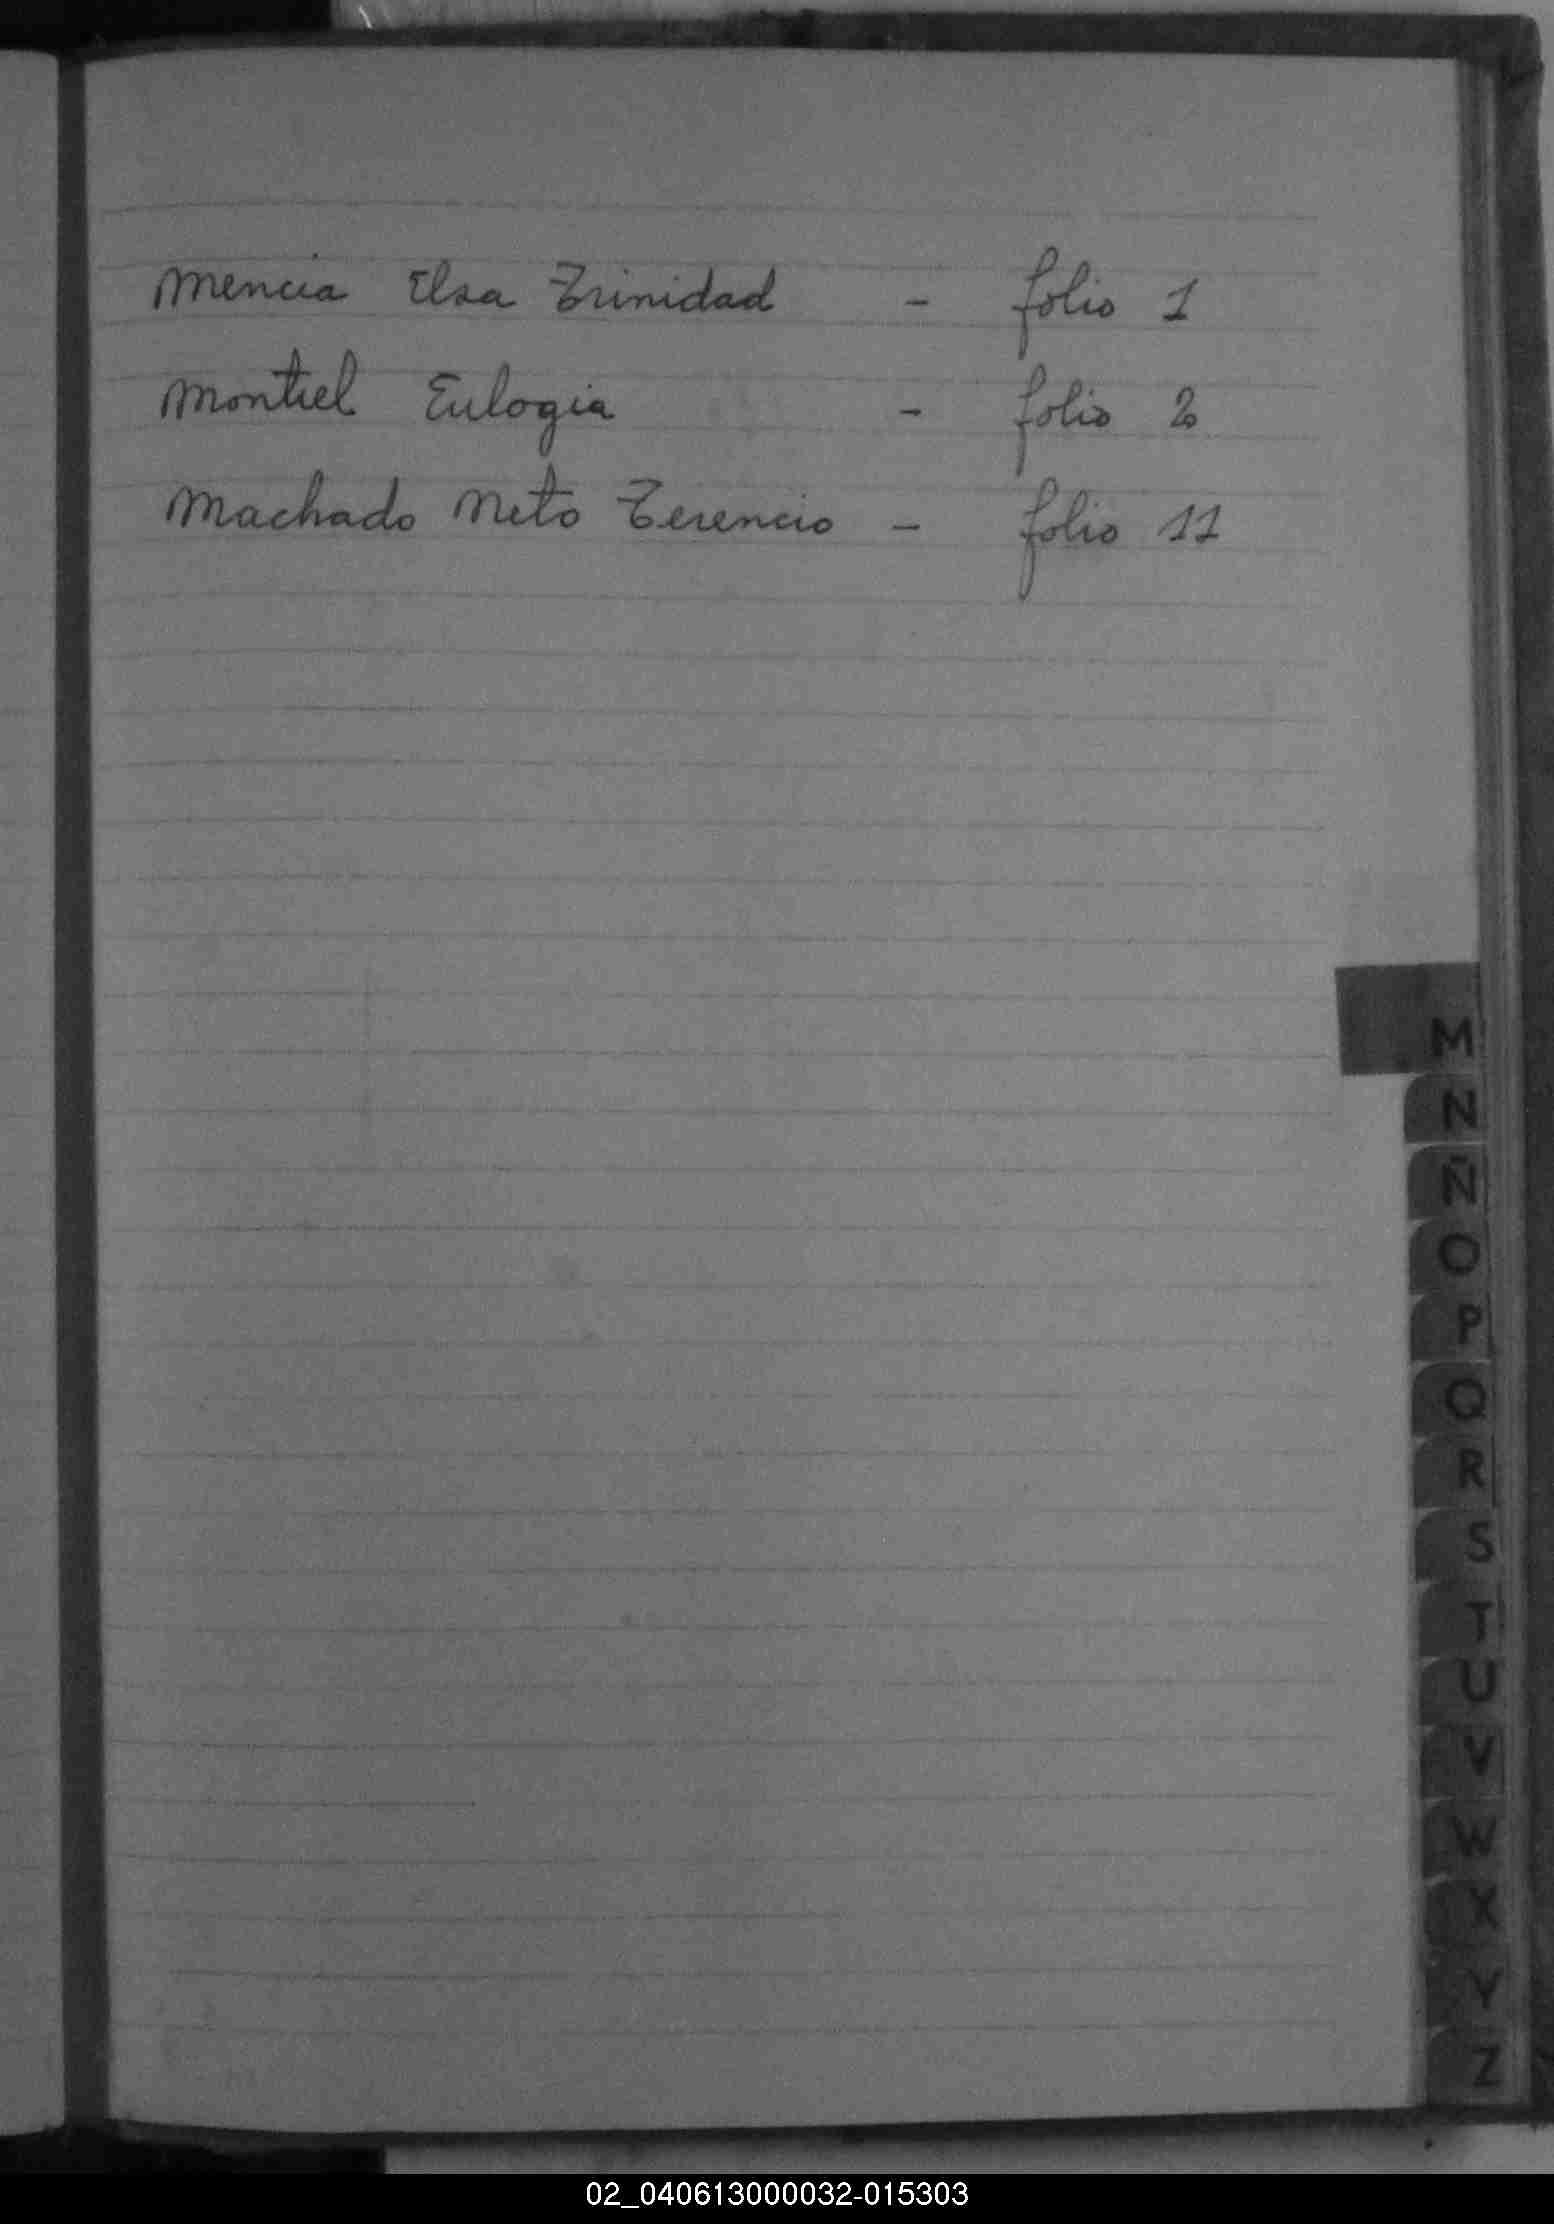 Mencia Elsa Trinidad - folio 1
Montiel Eulogia - folio 2
Machado Neto Terencio - folio 11
M
N
Ñ
O
P
Q
R
S
T
U
V
W
X
Y
Z
02_040613000032-015303